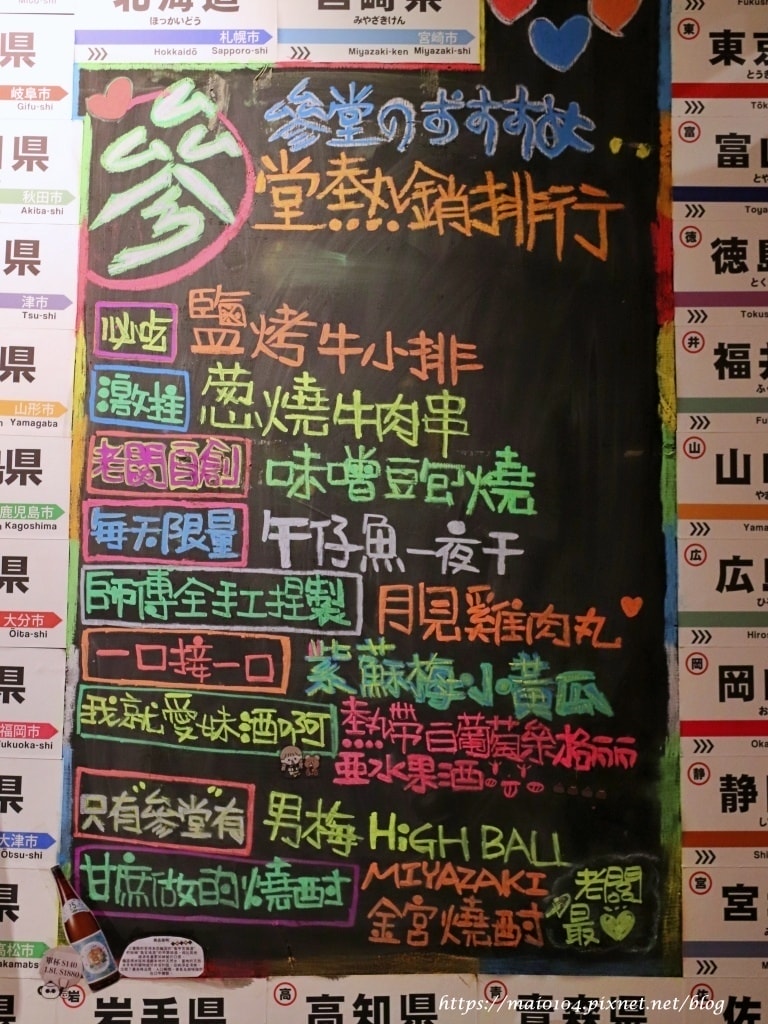 北海道
ほっかいどう
札幌市
Hokkaidō Sapporo-shi
宮崎県
みやざきけん
宮崎市
Miyazaki-ken Miyazaki-shi
參堂のおすすめ
參
堂熱銷排行
必吃 鹽烤牛小排
激推 葱燒牛肉串
老闆自創 味噌豆包燒
每天限量 午仔魚一夜干
師傅全手工捏製 月見雞肉丸
一口接一口 紫蘇梅小黃瓜
我就愛妹酒啊 熱帶白葡萄桑格麗
亜水果酒
只有"參堂"有 男梅 HiGH BALL
甘蔗做的燒酎 MIYAZAKI
金宮燒酎
老闆
最
單杯 $140
1.8L $1880
岐阜市
Gifu-shi
県
秋田市
Akita-shi
県
津市
Tsu-shi
県
山形市
Yamagata
県
鹿児島市
Kagoshima
県
大分市
Ōita-shi
県
福岡市
Fukuoka-shi
県
大津市
Ōtsu-shi
県
高松市
Takamats
東 東京
とうき
富 富山
とや
Toya
徳 徳島
とく
Tokus
井 福井
ふく
Fu
山 山口
Yama
広 広島
ひろ
Hiros
岡 岡山
Oka
静 静岡
宮 宮
佐 佐
岩 岩手県
高 高知県
青 青森県
https://maio104.pixnet.net/blog